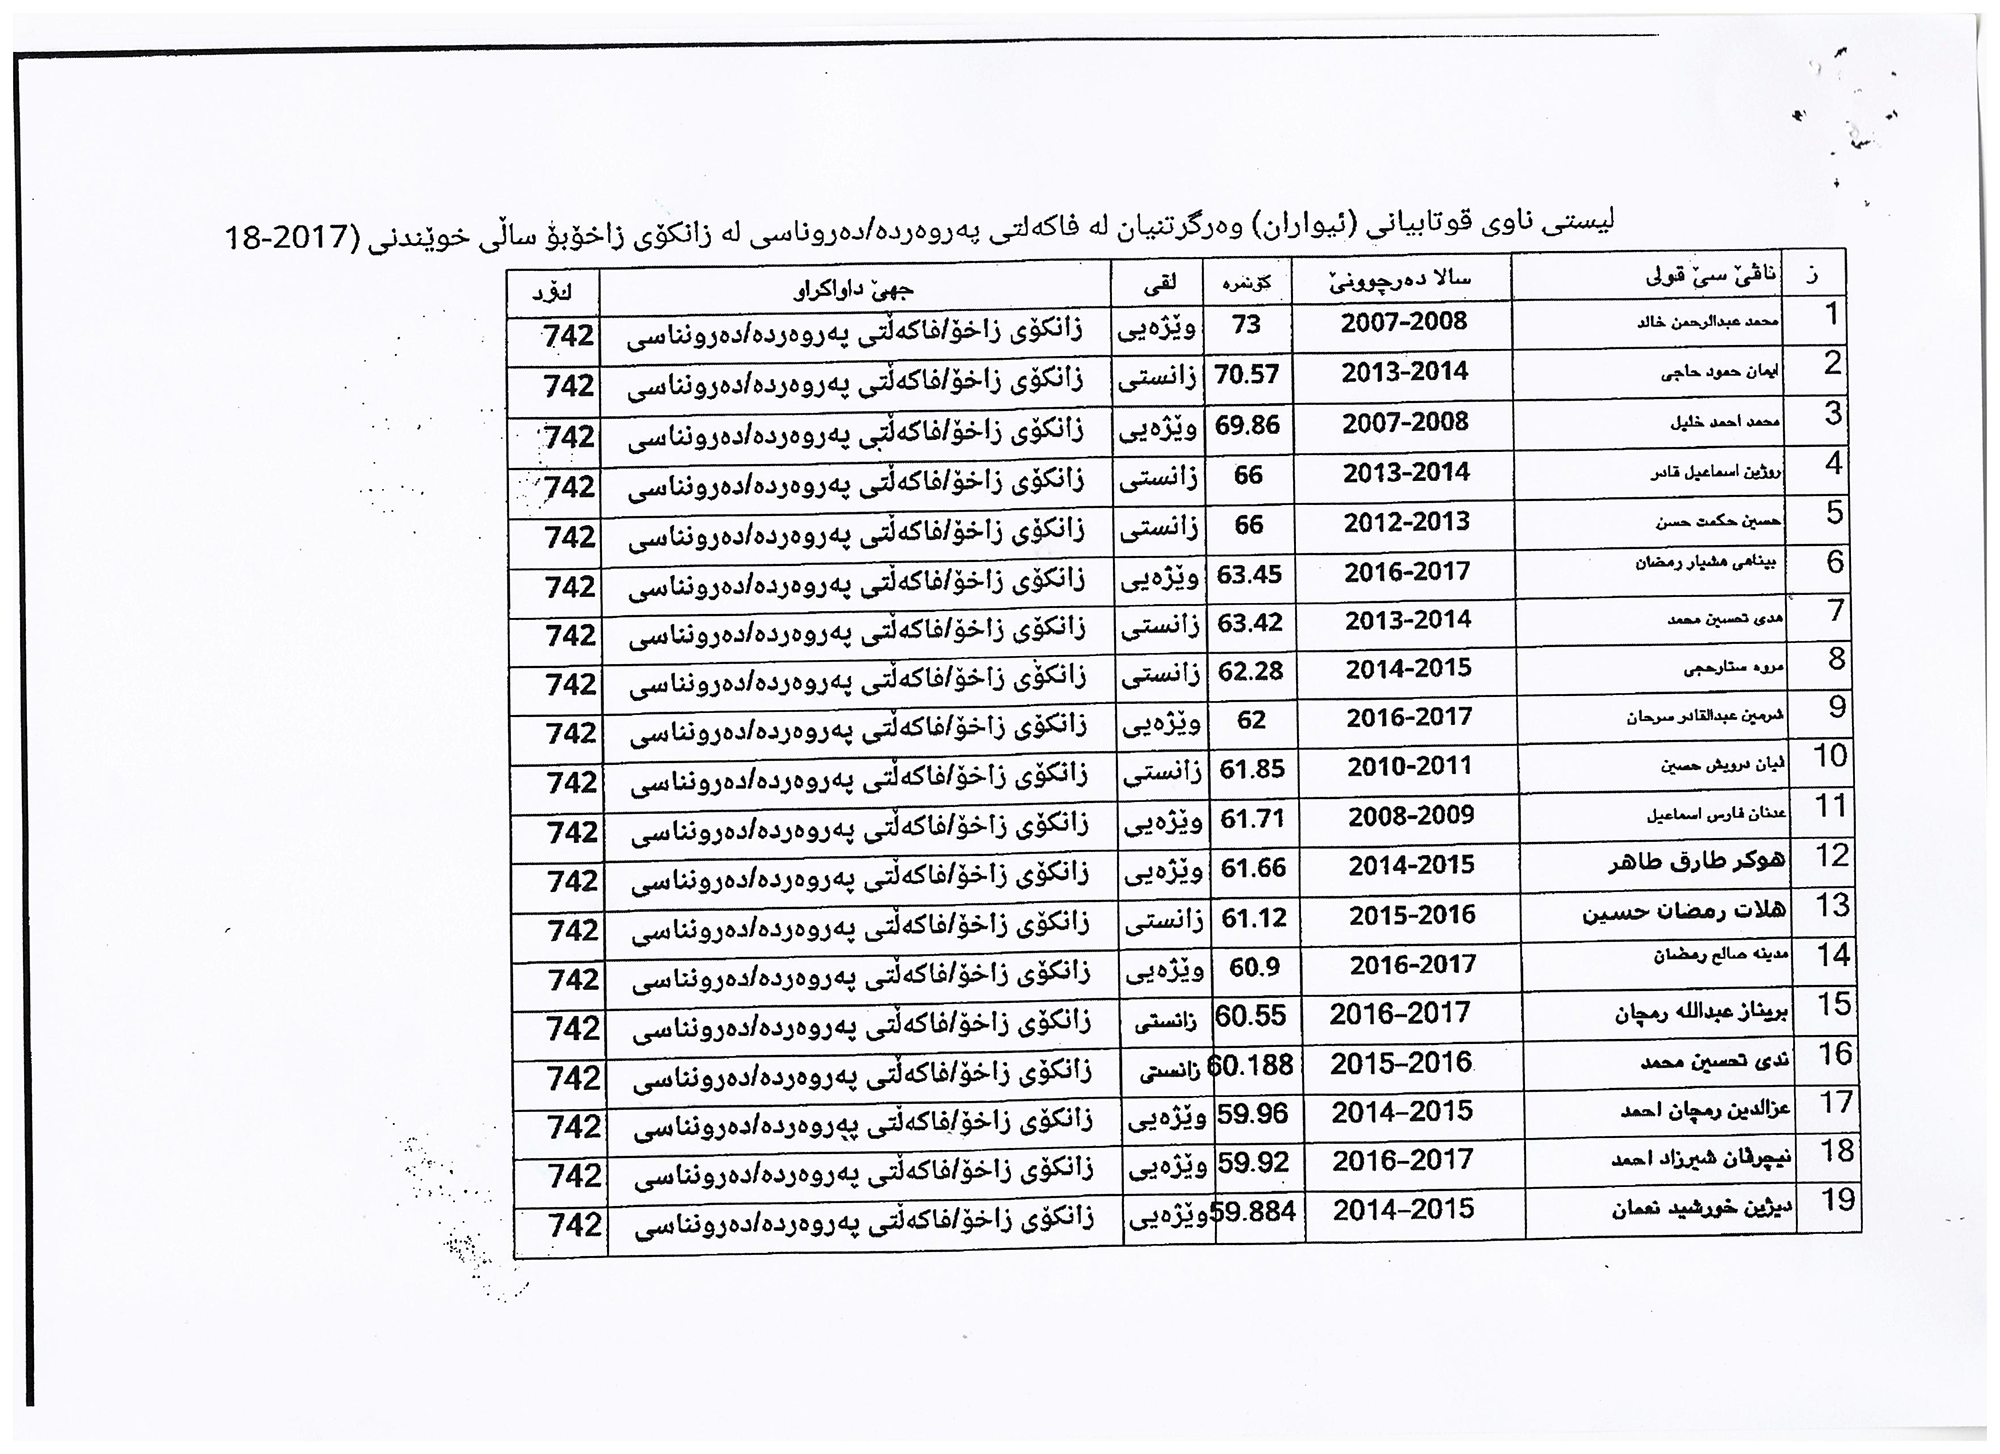 لیستی ناوی قوتابیانی (ئیواران) وەرگرتنیان لە فاکەلتی پەروەردە/دەروناسی لە زانکۆی زاخۆبۆ ساڵی خوێندنی (2017-18
ز ناڤێ سێ قولی سالا دەرچوونێ کۆنمرە لقی جهێ داواکراو کۆد
1 محمد عبدالرحمن خالد 2007-2008 73 وێژەیی زانکۆی زاخۆ/فاکەڵتی پەروەردە/دەرونناسی 742
2 ایمان حمود حاجی 2013-2014 70.57 زانستی زانکۆی زاخۆ/فاکەڵتی پەروەردە/دەرونناسی 742
3 محمد احمد خلیل 2007-2008 69.86 وێژەیی زانکۆی زاخۆ/فاکەڵتی پەروەردە/دەرونناسی 742
4 روژین اسماعیل قادر 2013-2014 66 زانستی زانکۆی زاخۆ/فاکەڵتی پەروەردە/دەرونناسی 742
5 حسین حکمت حسن 2012-2013 66 زانستی زانکۆی زاخۆ/فاکەڵتی پەروەردە/دەرونناسی 742
6 بیناهی هشیار رمضان 2016-2017 63.45 وێژەیی زانکۆی زاخۆ/فاکەڵتی پەروەردە/دەرونناسی 742
7 هدی تحسین محمد 2013-2014 63.42 زانستی زانکۆی زاخۆ/فاکەڵتی پەروەردە/دەرونناسی 742
8 مروە ستارحجی 2014-2015 62.28 زانستی زانکۆی زاخۆ/فاکەڵتی پەروەردە/دەرونناسی 742
9 شرمین عبدالقادر سرحان 2016-2017 62 وێژەیی زانکۆی زاخۆ/فاکەڵتی پەروەردە/دەرونناسی 742
10 ڤیان درویش حسین 2010-2011 61.85 زانستی زانکۆی زاخۆ/فاکەڵتی پەروەردە/دەرونناسی 742
11 عدنان فارس اسماعیل 2008-2009 61.71 وێژەیی زانکۆی زاخۆ/فاکەڵتی پەروەردە/دەرونناسی 742
12 هوکر طارق طاهر 2014-2015 61.66 وێژەیی زانکۆی زاخۆ/فاکەڵتی پەروەردە/دەرونناسی 742
13 هلات رمضان حسین 2015-2016 61.12 زانستی زانکۆی زاخۆ/فاکەڵتی پەروەردە/دەرونناسی 742
14 مدینه صالح رمضان 2016-2017 60.9 وێژەیی زانکۆی زاخۆ/فاکەڵتی پەروەردە/دەرونناسی 742
15 بریناز عبدالله رمچان 2016–2017 60.55 زانستی زانکۆی زاخۆ/فاکەڵتی پەروەردە/دەرونناسی 742
16 ندی تحسین محمد 2015–2016 60.188 زانستی زانکۆی زاخۆ/فاکەڵتی پەروەردە/دەرونناسی 742
17 عزالدین رمچان احمد 2014–2015 59.96 وێژەیی زانکۆی زاخۆ/فاکەڵتی پەروەردە/دەرونناسی 742
18 نیچرڤان شیرزاد احمد 2016–2017 59.92 وێژەیی زانکۆی زاخۆ/فاکەڵتی پەروەردە/دەرونناسی 742
19 دیژین خورشید نعمان 2014–2015 59.884 وێژەیی زانکۆی زاخۆ/فاکەڵتی پەروەردە/دەرونناسی 742